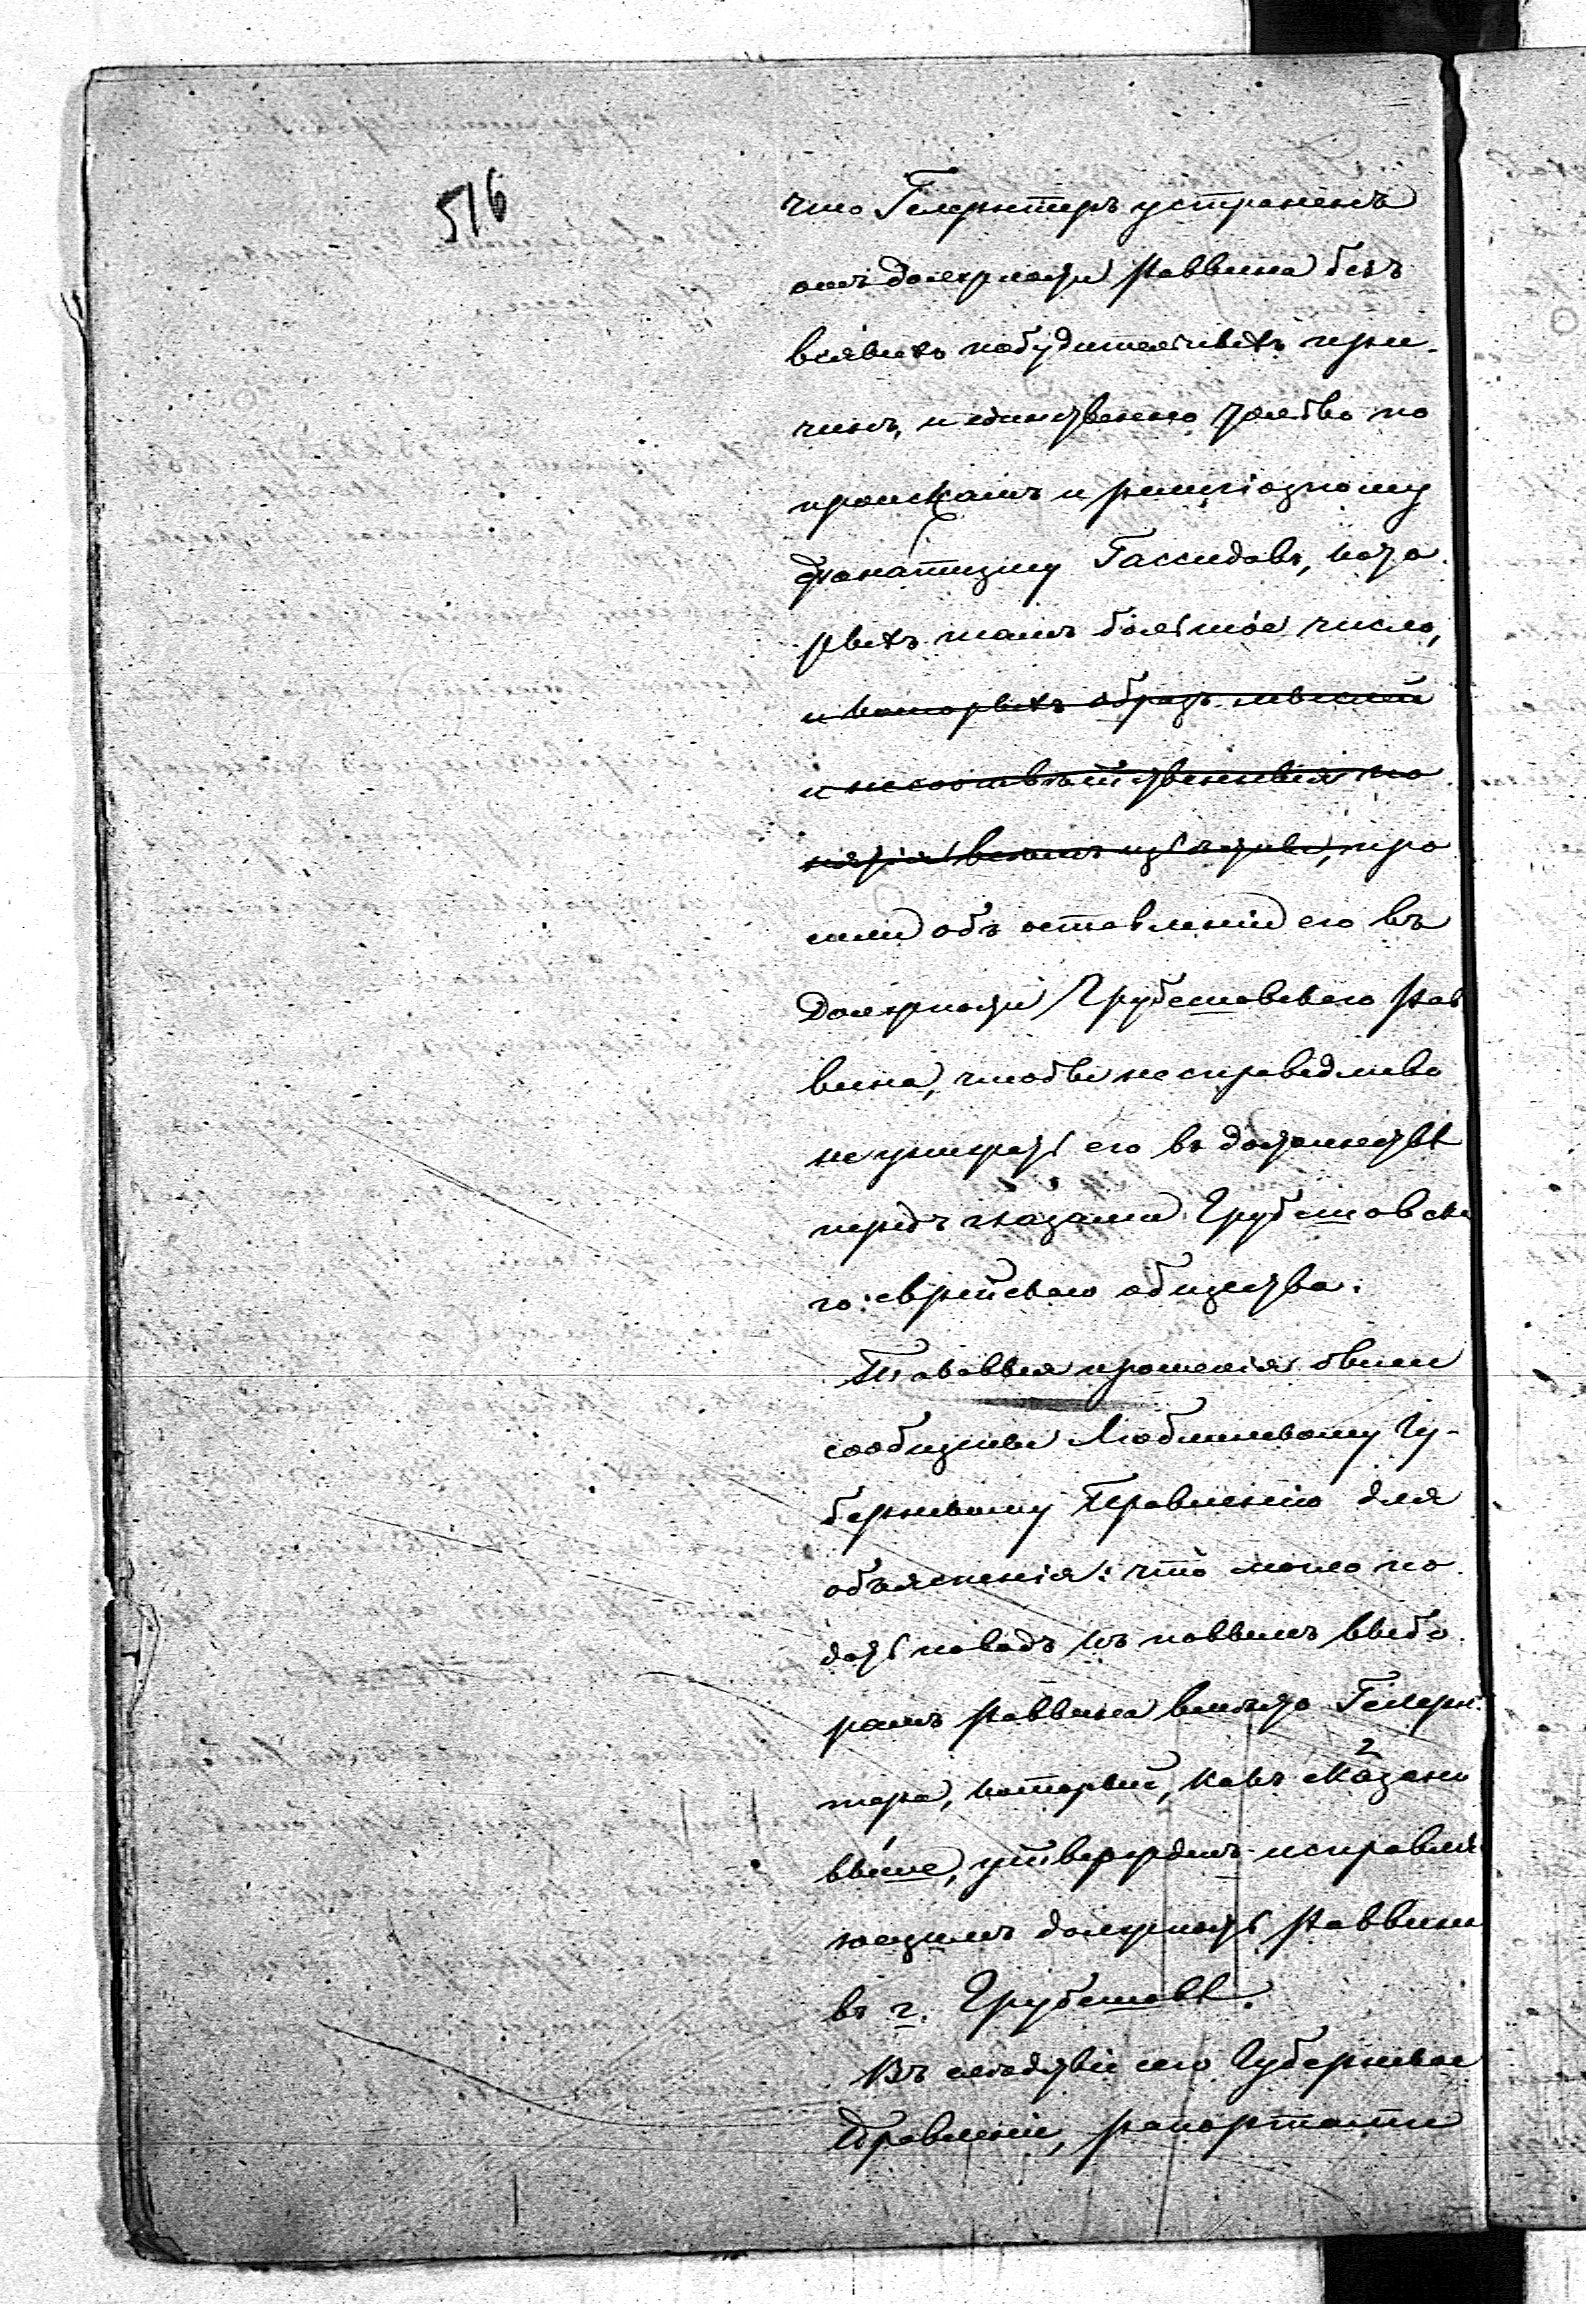 516
что Гелернтеръ устраненъ
отъ должности раввина безъ
всякихъ побудительныхъ при-
чинъ, и единственно только по
проискамъ и религіозному
фанатизму Гассидовъ, кото-
рыхъ тамъ большое число,
и которыхъ образъ мыслей
и несоотвѣтственныя по
нятія всѣмъ извѣстны, про
силъ объ оставленіи его въ
должности Грубешовскаго рав
вина, чтобы несправедливо
не унижать его въ достоинствѣ
передъ глазами Грубешовска
го еврейскаго общества.
Таковыя прошенія были
сообщены Люблинскому Гу-
бернскому Правленію для
объясненія: что могло по
дать поводъ къ новымъ выбо
рамъ раввина вмѣсто Гелерн
тера, который, какъ сказано
выше, утвержденъ исправля
ющимъ должность раввина
въ г. Грубешовѣ.
Въ слѣдствіе сего Губернское
Правленіе, рапортами